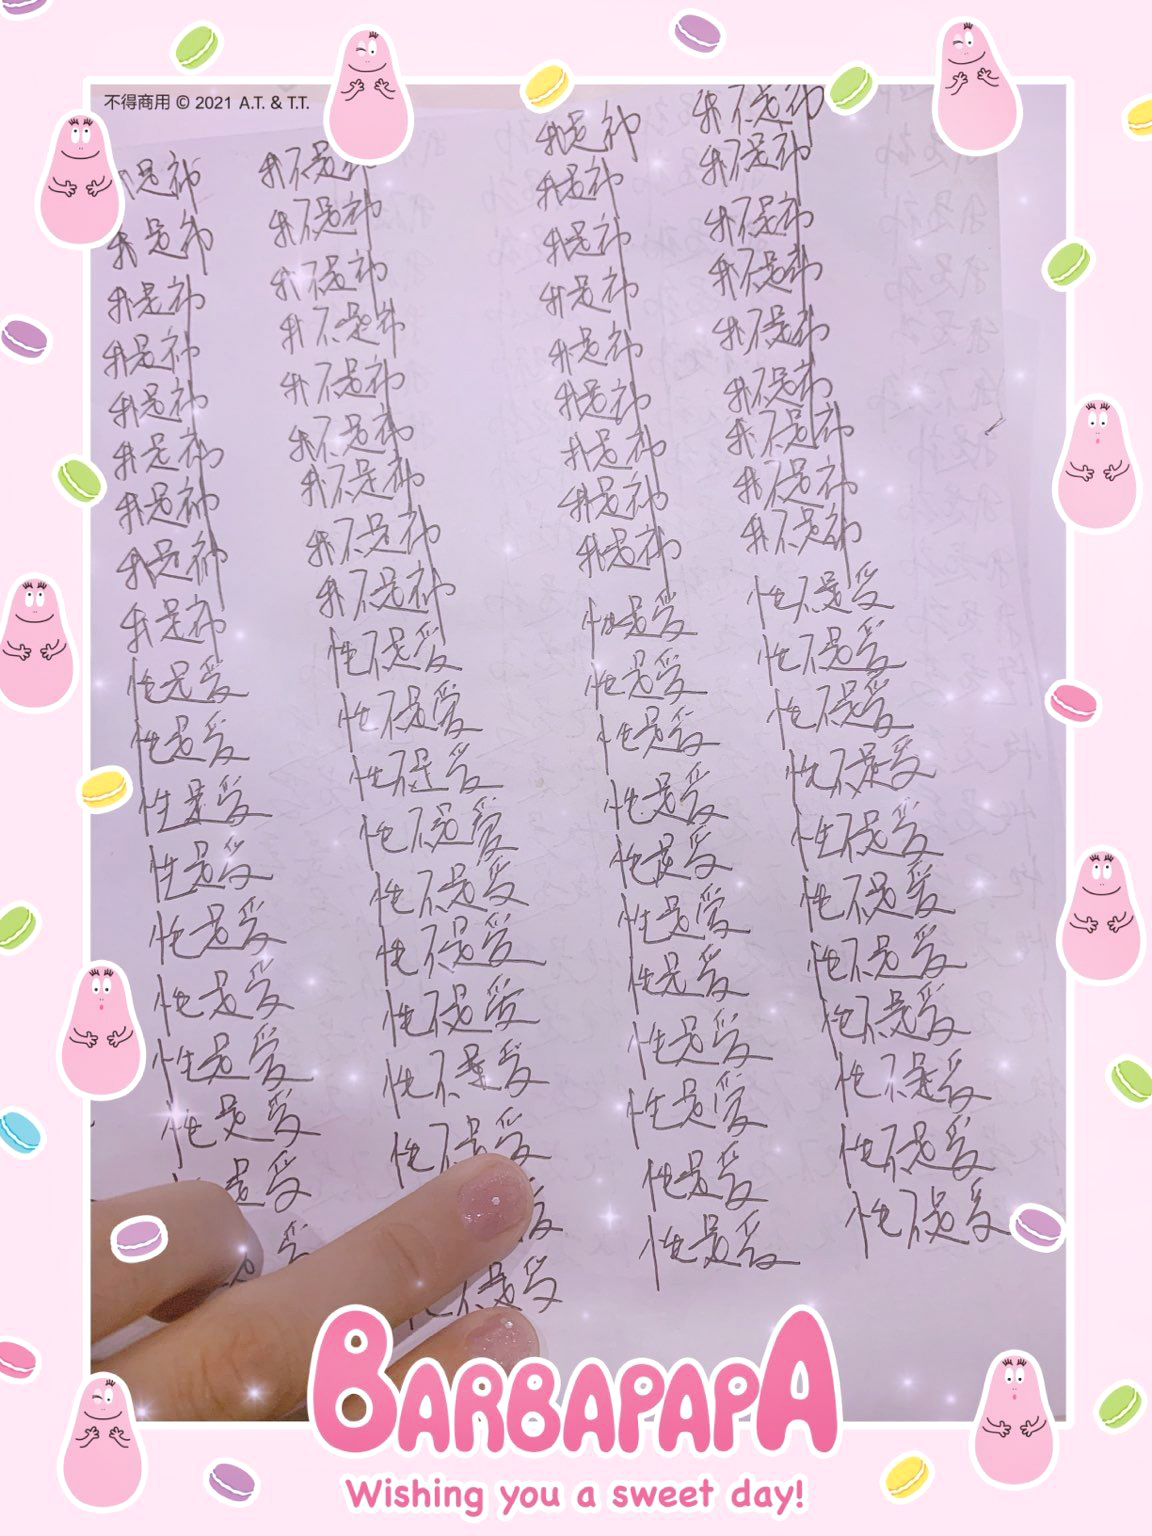 不得商用 © 2021 A.T. & T.T.
我是神
我是神
我是神
我是神
我是神
我是神
我是神
我是神
我是神
性是爱
性是爱
性是爱
性是爱
性是爱
性是爱
性是爱
性是爱
是爱
爱
我不是神
我不是神
我不是神
我不是神
我不是神
我不是神
我不是神
我不是神
我不是神
性不是爱
性不是爱
性不是爱
性不是爱
性不是爱
性不是爱
性不是爱
性不是爱
性不是爱
爱
不是爱
我是神
我是神
我是神
我是神
我是神
我是神
我是神
我是神
我是神
性是爱
性是爱
性是爱
性是爱
性是爱
性是爱
性是爱
性是爱
性是爱
性是爱
性是爱
我不是神
我不是神
我不是神
我不是神
我不是神
我不是神
我不是神
我不是神
我不是神
性不是爱
性不是爱
性不是爱
性不是爱
性不是爱
性不是爱
性不是爱
性不是爱
性不是爱
性不是爱
性不是爱
BARBAPAPA
Wishing you a sweet day!